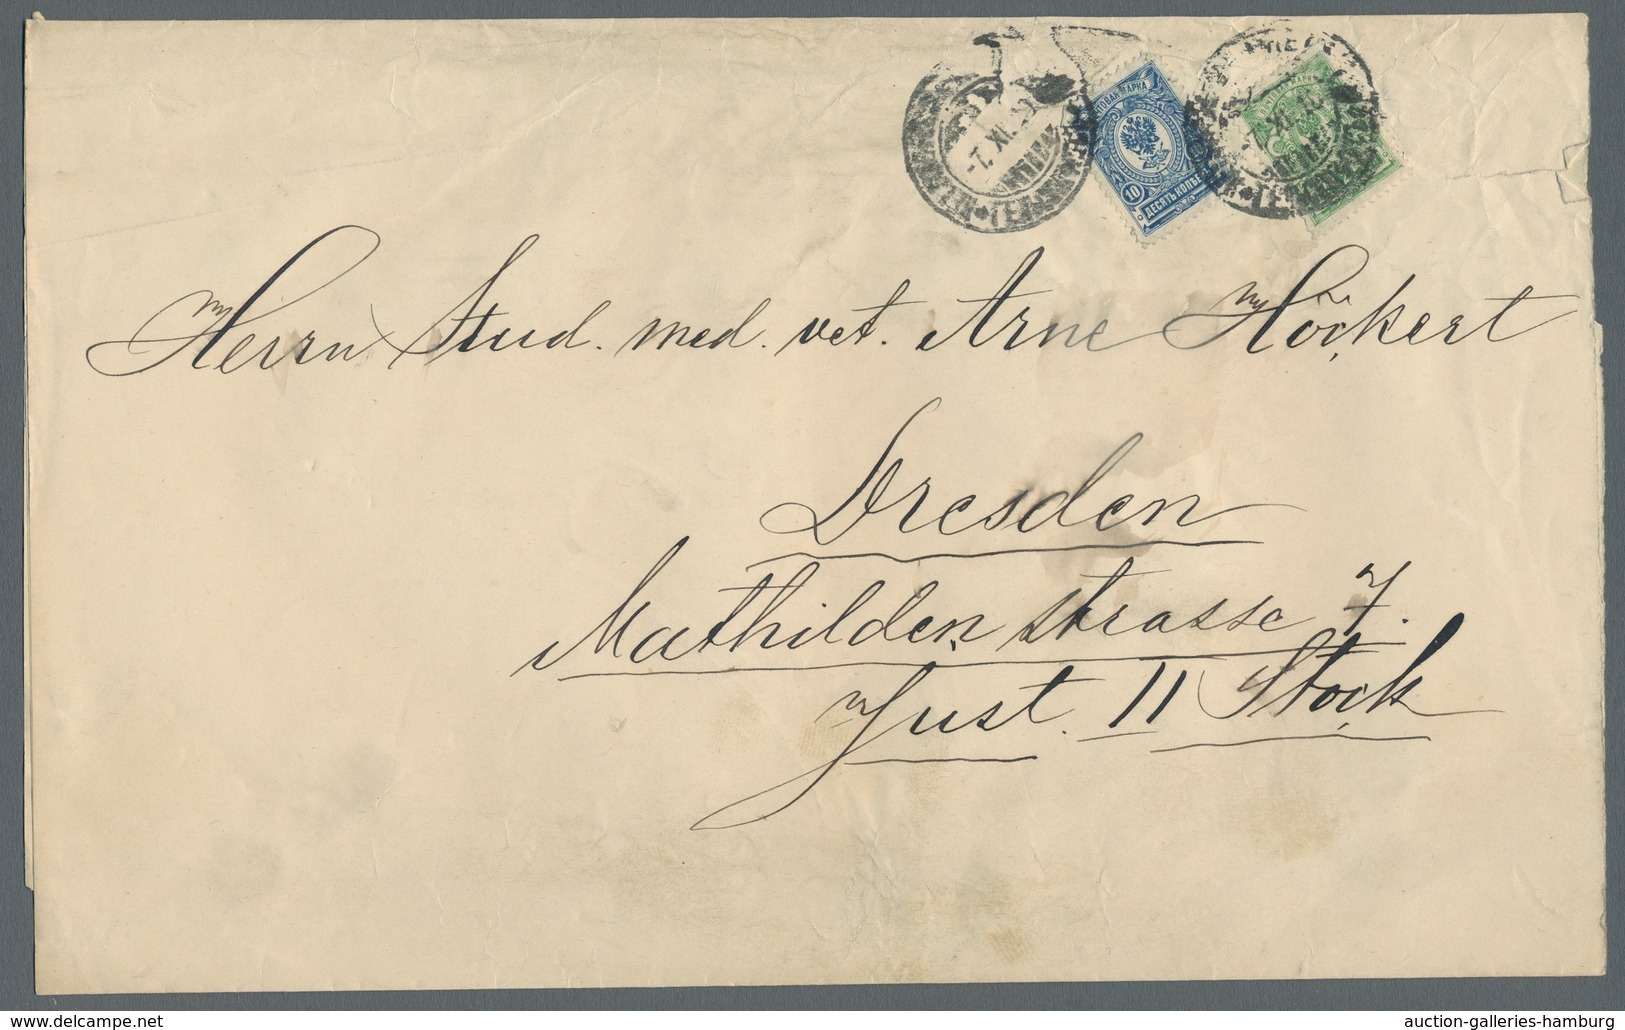 ПОЧТОВАЯ МАРКА
10
ДЕСЯТЬ КОП
Herrn Stud. med. vet. Arne Höckert
Dresden
Mathildenstrasse 7.
Just. II Stock
www.delcampe.net
auction-galleries-hamburg